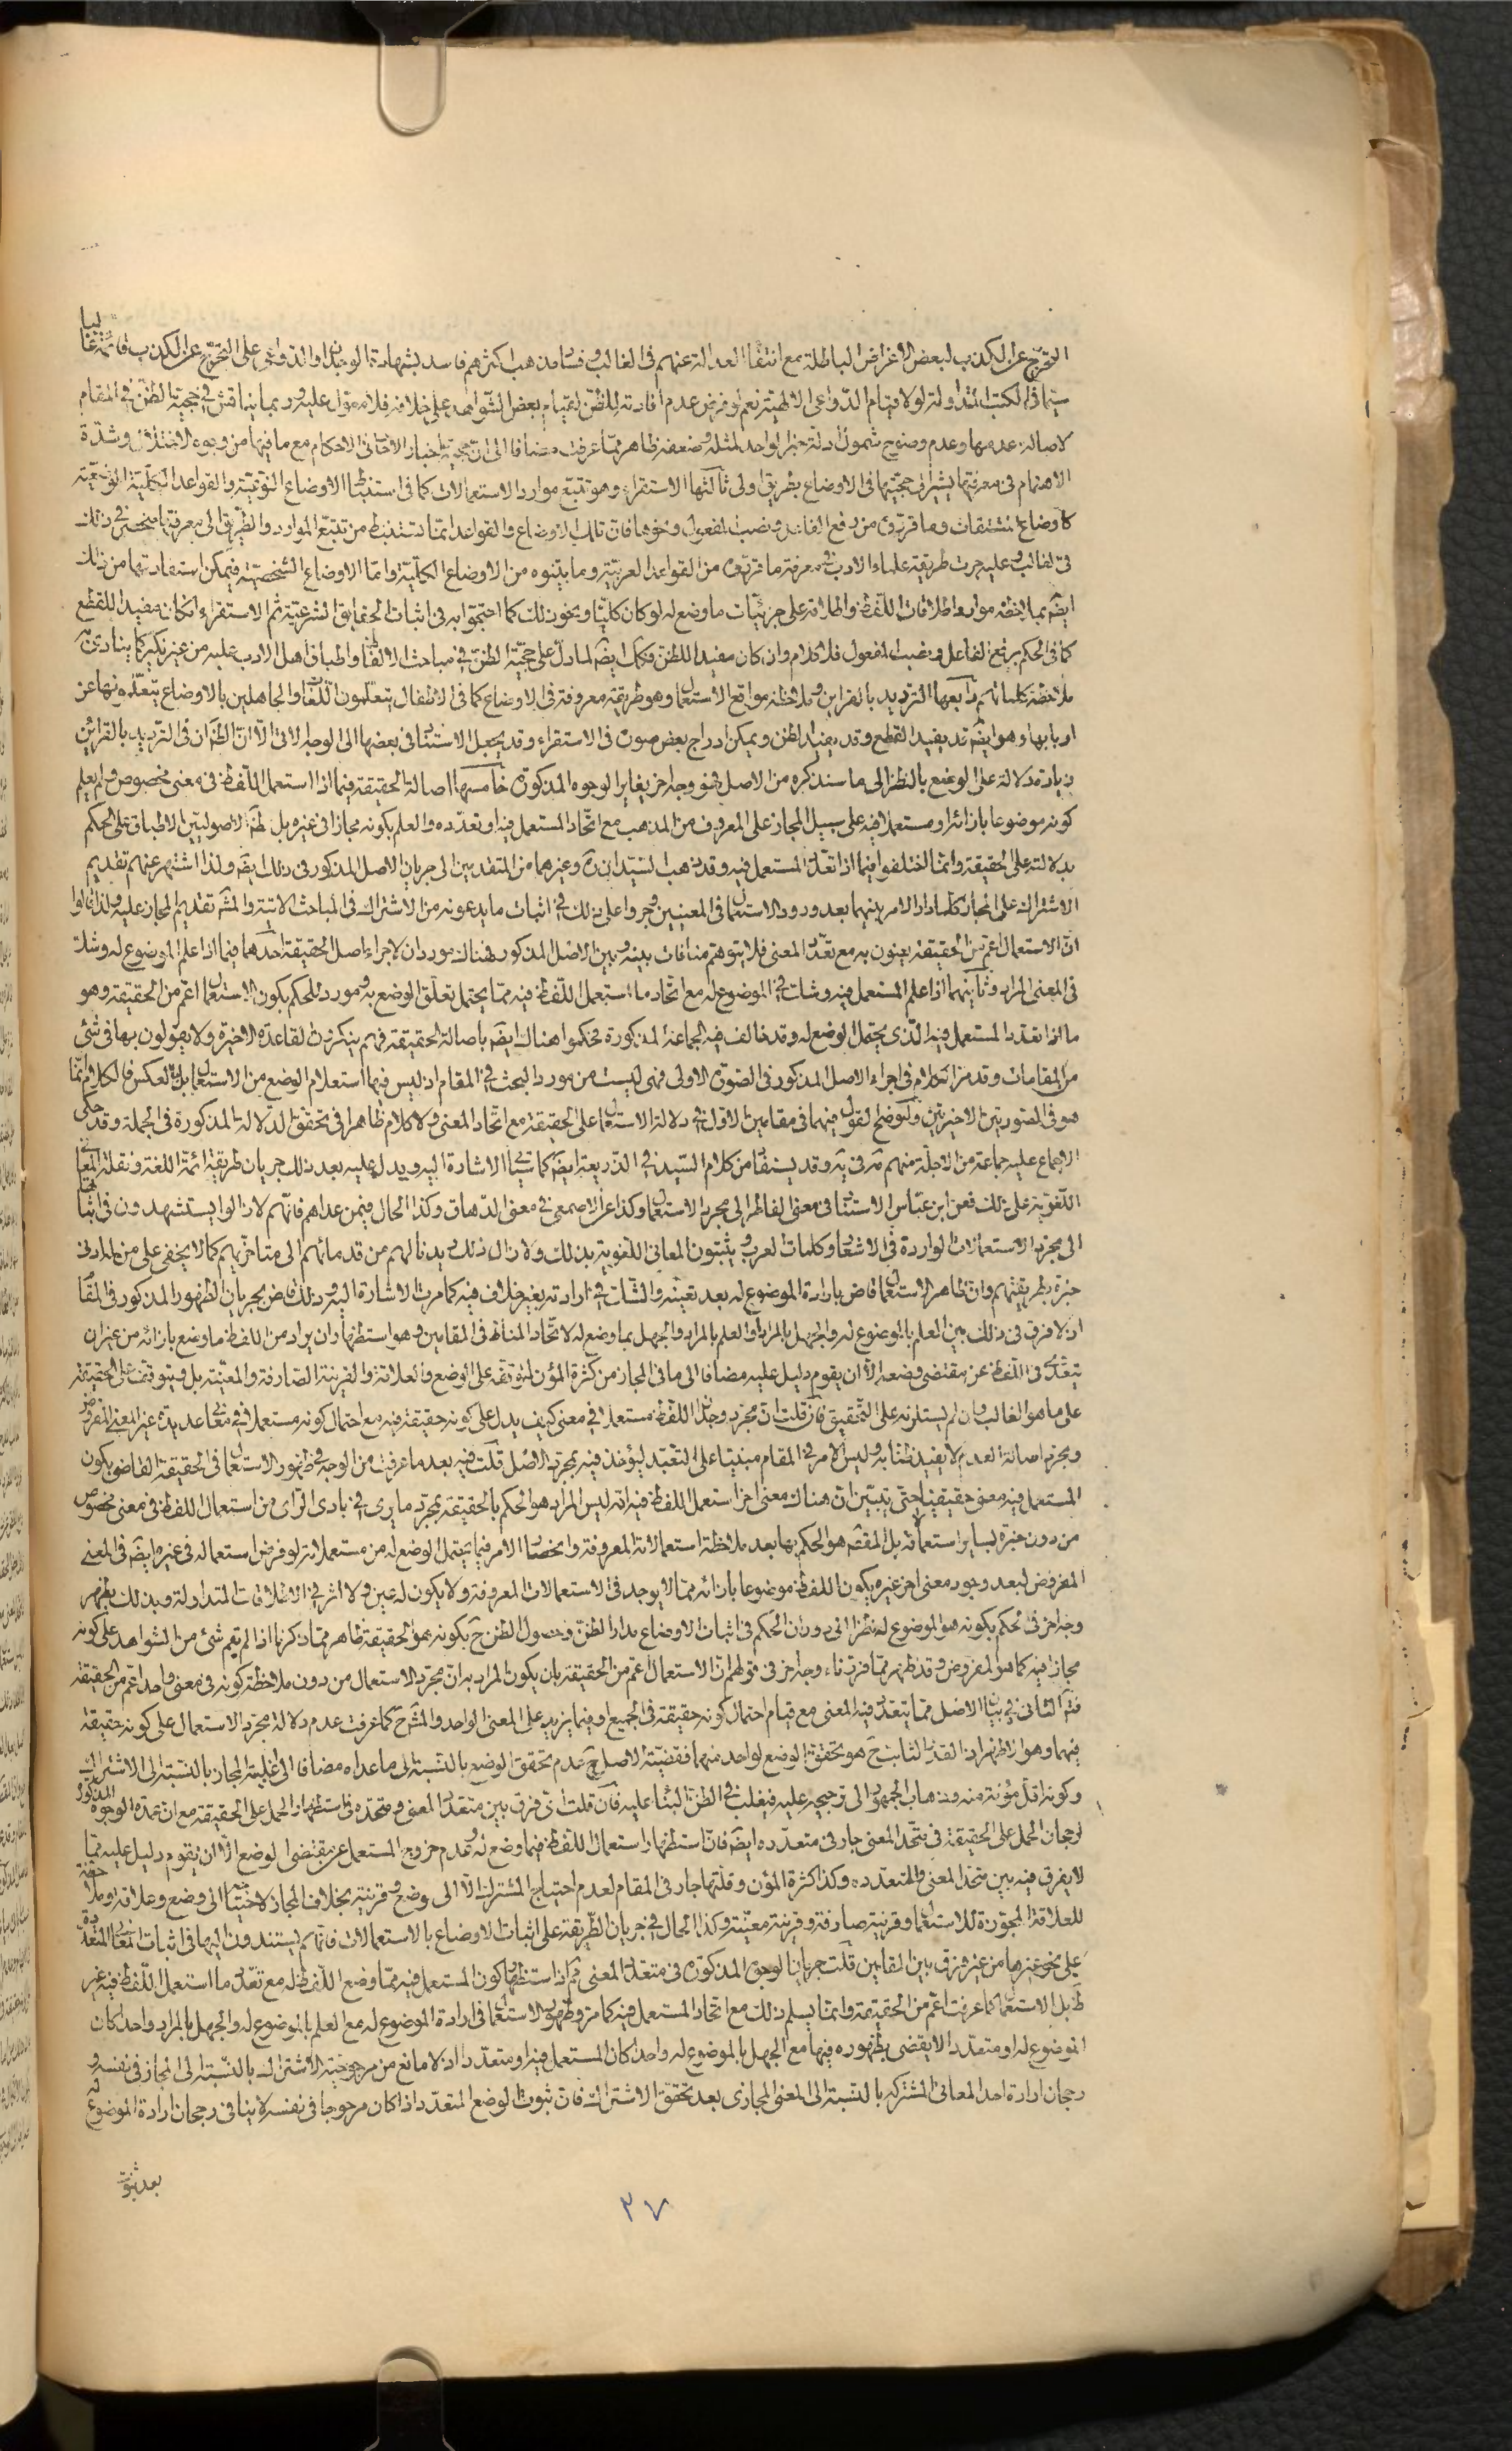 التحرّج عن الكذب لبعض الاغراض الباطلة مع انتفاء العدالة عنهم في الغالب وفساد مذهب اكثرهم فاسد بشهادة الوجدان والدواعي على التحرّج عن الكذب قائمة غالبا
سيّما في الكتب المتداولة لولا قيام الدّواعى الالهيّة نعم لو فرض عدم افادته للظنّ لقيام بعض الشّواهد على خلافه فلا معوّل عليه وربما يناقش في حجية الظنّ في المقام
لاصالة عدمها وعدم وضوح شمول ادلّة خبر الواحد لمثله وضعفه ظاهر ممّا عرفت مضافا الى انّ حجية اخبار الآحاد في الاحكام مع ما فيها من وجوه الاختلال وشدّة
الاهتمام في معرفتها يشير الى حجيّتها في الاوضاع بطريق اولى ثالثها الاستقراء وهو تتبّع موارد الاستعمالات كما في استنباط الاوضاع النّوعيّة والقواعد الكليّة الوضعيّة
كاوضاع المشتقات وما قرّروه من رفع الفاعل ونصب المفعول ونحوها فانّ تلك الاوضاع والقواعد انّما تستنبط من تتبّع الموارد والطّريق الى معرفتها منحصر في ذلك
في الغالب وعليه جرت طريقة علماء الادب في معرفة ما قرّروه من القواعد العربيّة وما بيّنوه من الاوضاع الكليّة وامّا الاوضاع الشّخصيّة فيمكن استفادتها من ذلك
ايضا بملاحظة موارد اطلاقات اللّفظ واطلاقه على جزئيّات ما وضع له لو كان كليّا ونحو ذلك كما احتجّوا به في اثبات الحقايق الشّرعيّة ثمّ الاستقراء ان كان مفيدا للقطع
كما في الحكم برفع الفاعل ونصب المفعول فلا كلام وان كان مفيدا للظن فكك ايضا لما دلّ على حجيّة الظنّ في مباحث الالفاظ واطباق اهل الادب عليه من غير نكير كما ينادى به
ملاحظة كلماتهم رابعها الترديد بالقراين وملاحظة مواقع الاستعمال وهو طريقة معروفة في الاوضاع كما في الاطفال يتعلّمون اللّغات والجاهلين بالاوضاع يتعلّمونها عن
اربابها وهو ايضا قد يفيد القطع وقد يفيد الظن ويمكن ادراج بعض صوره في الاستقراء وقد يجعل الاستناد في بعضها الى الوجه الاتى الّا انّ الظّ انّ في الترديد بالقراين
زيادة دلالة على الوضع بالنظر الى ما سنذكره من الاصل فهو وجه اخر يغاير الوجوه المذكورة خامسها اصالة الحقيقة فيما اذا استعمل اللّفظ في معنى مخصوص ولم يعلم
كونه موضوعا بازائه او مستعملا فيه على سبيل المجاز على المعروف من المذهب مع اتّحاد المستعمل فيه او تعدّده والعلم بكونه مجازا في غيره بل ظ الاصوليّين الاطباق على الحكم
بدلالته على الحقيقة وانّما اختلفوا فيما اذا تعدّد المستعمل فيه وقد ذهب السّيّدان ره وغيرهما من المتقدمين الى جريان الاصل المذكور في ذلك ايضا ولذا اشتهر عنهم تقديم
الاشتراك على المجاز كلّما دار الامر بينهما بعد ورود الاستعمال في المعنيين وجروا على ذلك في اثبات ما يدعونه من الاشتراك في المباحث الاتية والمشه تقديم المجاز عليه ولذا قالوا
انّ الاستعمال اعمّ من الحقيقة يعنون به مع تعدّد المعنى فلا يتوهّم منافات بينه وبين الاصل المذكور فهناك موردان لاجراء اصل الحقيقة احدهما فيما اذا علم الموضوع له وشك
في المعنى المراد وثانيهما اذا علم المستعمل فيه وشك في الموضوع له مع اتّحاد ما استعمل اللّفظ فيه ممّا يحتمل تعلّق الوضع به ومورد للحكم بكون الاستعمال اعمّ من الحقيقة وهو
ما اذا تعدّد المستعمل فيه الّذى يحتمل الوضع له وقد خالف فيه الجماعة المذكورة فحكموا هناك ايضا باصالة الحقيقة فهم ينكرون القاعدة الاخيرة ولا يقولون بها في شئ
من المقامات وقد مرّ الكلام في اجراء الاصل المذكور في الصّورة الاولى فهى ليست من مورد البحث في المقام اذ ليس فيها استعلام الوضع من الاستعمال بل بالعكس فالكلام انّما
هو في الصّورتين الاخيرتين ولنوضح القول فيهما في مقامين الاوّل في دلالة الاستعمال على الحقيقة مع اتّحاد المعنى ولا كلام ظاهرا في تحقّق الدّلالة المذكورة في الجملة وقد حكى
الاجماع عليه جماعة من الاجلّة منهم مه في يه وقد يستفاد من كلام السّيّد في الذّريعة ايضا كما سيجئ الاشارة اليه ويدلّ عليه بعد ذلك جريان طريقة ائمة اللّغة ونقلة المعانى
اللّغويّة على ذلك فعن ابن عبّاس الاستناد في معنى الفاطر الى مجرّد الاستعمال وكذا عن الاصمعى في معنى الدّهاق وكذا الحال فيمن عداهم فانّهم لازالوا يستشهدون في اثباتها
الى مجرّد الاستعمالات الواردة في الاشعار وكلمات العرب ويثبتون المعانى اللّغويّة بذلك ولا زال ذلك ديدنا لهم من قدمائهم الى متاخّريهم كما لا يخفى على من له ادنى
خبرة بطريقتهم وانّ ظاهر الاستعمال قاض بارادة الموضوع له بعد تعيّنه والشّك في ارادته بغير خلاف فيه كما مرت الاشارة اليه وذلك قاض بجريان الظّهور المذكور في المقام
اذ لا فرق في ذلك بين العلم بالموضوع له والجهل بالمراد او العلم بالمراد والجهل بما وضع له لاتّحاد المناط في المقامين وهو استظهار ان يراد من اللفظ ما وضع بازائه من غير ان
يتعدّى في اللّفظ عن مقتضى وضعه الّا ان يقوم دليل عليه مضافا الى ما في المجاز من كثرة المؤن لتوقّفه على الوضع والعلاقة والقرينة الصّارفة والمعيّنة بل ويتوقّف على الحقيقة
على ما هو الغالب وان لم يستلزمه على التّحقيق فان قلت انّ مجرّد وجدان اللّفظ مستعملا في معنى كيف يدلّ على كونه حقيقة فيه مع احتمال كونه مستعملا في معانى عديدة غير المعنى المفروض
ومجرّد اصالة العدم لا يفيد ظنّا به وليس الامر في المقام مبنيّا على التعبّد ليؤخذ فيه بمجرّد الاصل قلت فيه بعد ما عرفت من الوجه في ظهور الاستعمال في الحقيقة القاضى بكون
المستعمل فيه معنى حقيقيّا حتّى يتبيّن انّ هناك معنى اخر استعمل اللّفظ فيه انّه ليس المراد هو الحكم بالحقيقة بمجرّد ما يرى في بادى الرّاى من استعمال اللفظ في معنى مخصوص
من دون خبرة بساير استعمالاته بل المقصود هو الحكم بها بعد ملاحظة استعمالاته المعروفة وانحصار الامر فيما يحتمل الوضع له من مستعملاته لو فرض استعماله في غيره ايضا في المعنى
المفروض لبعد وجود معنى اخر غيره يكون اللفظ موضوعا بازائه ممّا لا يوجد في الاستعمالات المعروفة ولا يكون له عين ولا اثر في الاطلاقات المتداولة وبذلك يظهر
وجه اخر في الحكم بكونه هو الموضوع له نظرا الى دوران الحكم في اثبات الاوضاع مدار الظنّ وحصول الظن ح بكونه هو الحقيقة ظاهر ممّا ذكرنا اذا لم يقم شئ من الشواهد على كونه
مجازا فيه كما هو المفروض وقد ظهر ممّا قرّرناه وجه اخر في قولهم انّ الاستعمال اعمّ من الحقيقة بان يكون المراد به انّ مجرّد الاستعمال من دون ملاحظة كونه في معنى واحد اعمّ من الحقيقة
الثانى في بيان الاصل فيما يتعدّد فيه المعنى مع قيام احتمال كونه حقيقة في الجميع او فيما يزيد على المعنى الواحد والمشه ح كما عرفت عدم دلالة مجرّد الاستعمال على كونه حقيقة
فيهما وهو الاظهر اذ القدر الثابت ح هو تحقّق الوضع لواحد منهما فقضيّة الاصل ح عدم تحقق الوضع بالنّسبة الى ما عداه مضافا الى غلبة المجاز بالنّسبة الى الاشتراك
وكونه اقلّ مؤنة منه وذهاب الجمهور الى ترجيحه عليه فيغلب في الظنّ البناء عليه فان قلت اىّ فرق بين متعدّد المعنى ومتّحده في استظهار الحمل على الحقيقة مع انّ عمدة الوجوه المذكورة
لرجحان الحمل على الحقيقة في متّحد المعنى جار في متعدّده ايضا فانّ استظهار استعمال اللّفظ فيما وضع له وعدم خروج المستعمل عن مقتضى الوضع الّا ان يقوم دليل عليه ممّا
لا يفرق فيه بين متّحد المعنى والمتعدّده وكذا كثرة المؤن وقلّتها جار في المقام لعدم احتياج المشترك الّا الى وضع وقرينة بخلاف المجاز لاحتياجه الى وضع وعلاقة وملاحظة
للعلاقة المجوّزة للاستعمال وقرينة صارفة وقرينة معيّنة وكذا الحال في جريان الطّريقة على اثبات الاوضاع بالاستعمالات فانّهم يستندون اليها في اثبات المعانى المتعدّدة
على نحو غيرها من غير فرق بين المقامين قلت جريان الوجوه المذكورة في متعدّد المعنى مم اذ استظهار كون المستعمل فيه ممّا وضع اللّفظ له مع تعدّد ما استعمل اللّفظ فيه غير
ظ بل الاستعمال كما عرفت اعمّ من الحقيقة وانّما يسلم ذلك مع اتّحاد المستعمل فيه كما مرّ وظهور الاستعمال في ارادة الموضوع له مع العلم بالموضوع له والجهل بالمراد واحدا كان
الموضوع له او متعدّدا لا يقضى بظهوره فيها مع الجهل بالموضوع له واحدا كان المستعمل فيه او متعدّدا اذ لا مانع من مرجوحيّة الاشتراك بالنّسبة الى المجاز في نفسه و
رجحان ارادة احد المعانى المشتركه بالنّسبة الى المعنى المجازى بعد تحقّق الاشتراك فانّ ثبوت الوضع المتعدّد اذا كان مرجوحا في نفسه لا ينافى رجحان ارادة الموضوع له
بعد ثبوت
٣٧